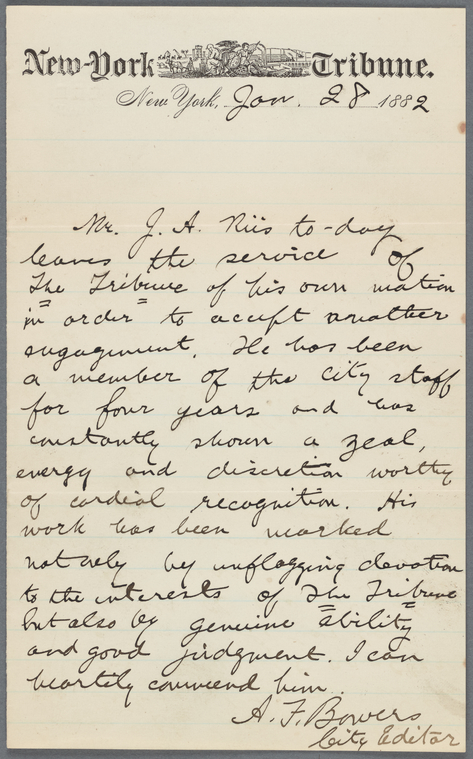 New-York Tribune.
New York, Jan. 28 1882
Mr. J. A. Riis to-day
leaves the service of
The Tribune of his own motion
in order to accept another
engagement. He has been
a member of the city staff
for four years and has
constantly shown a zeal,
energy and discretion worthy
of cordial recognition. His
work has been marked
not only by unflagging devotion
to the interests of The Tribune
but also by genuine ability
and good judgment. I can
heartily commend him.
A. F. Bowers
City Editor